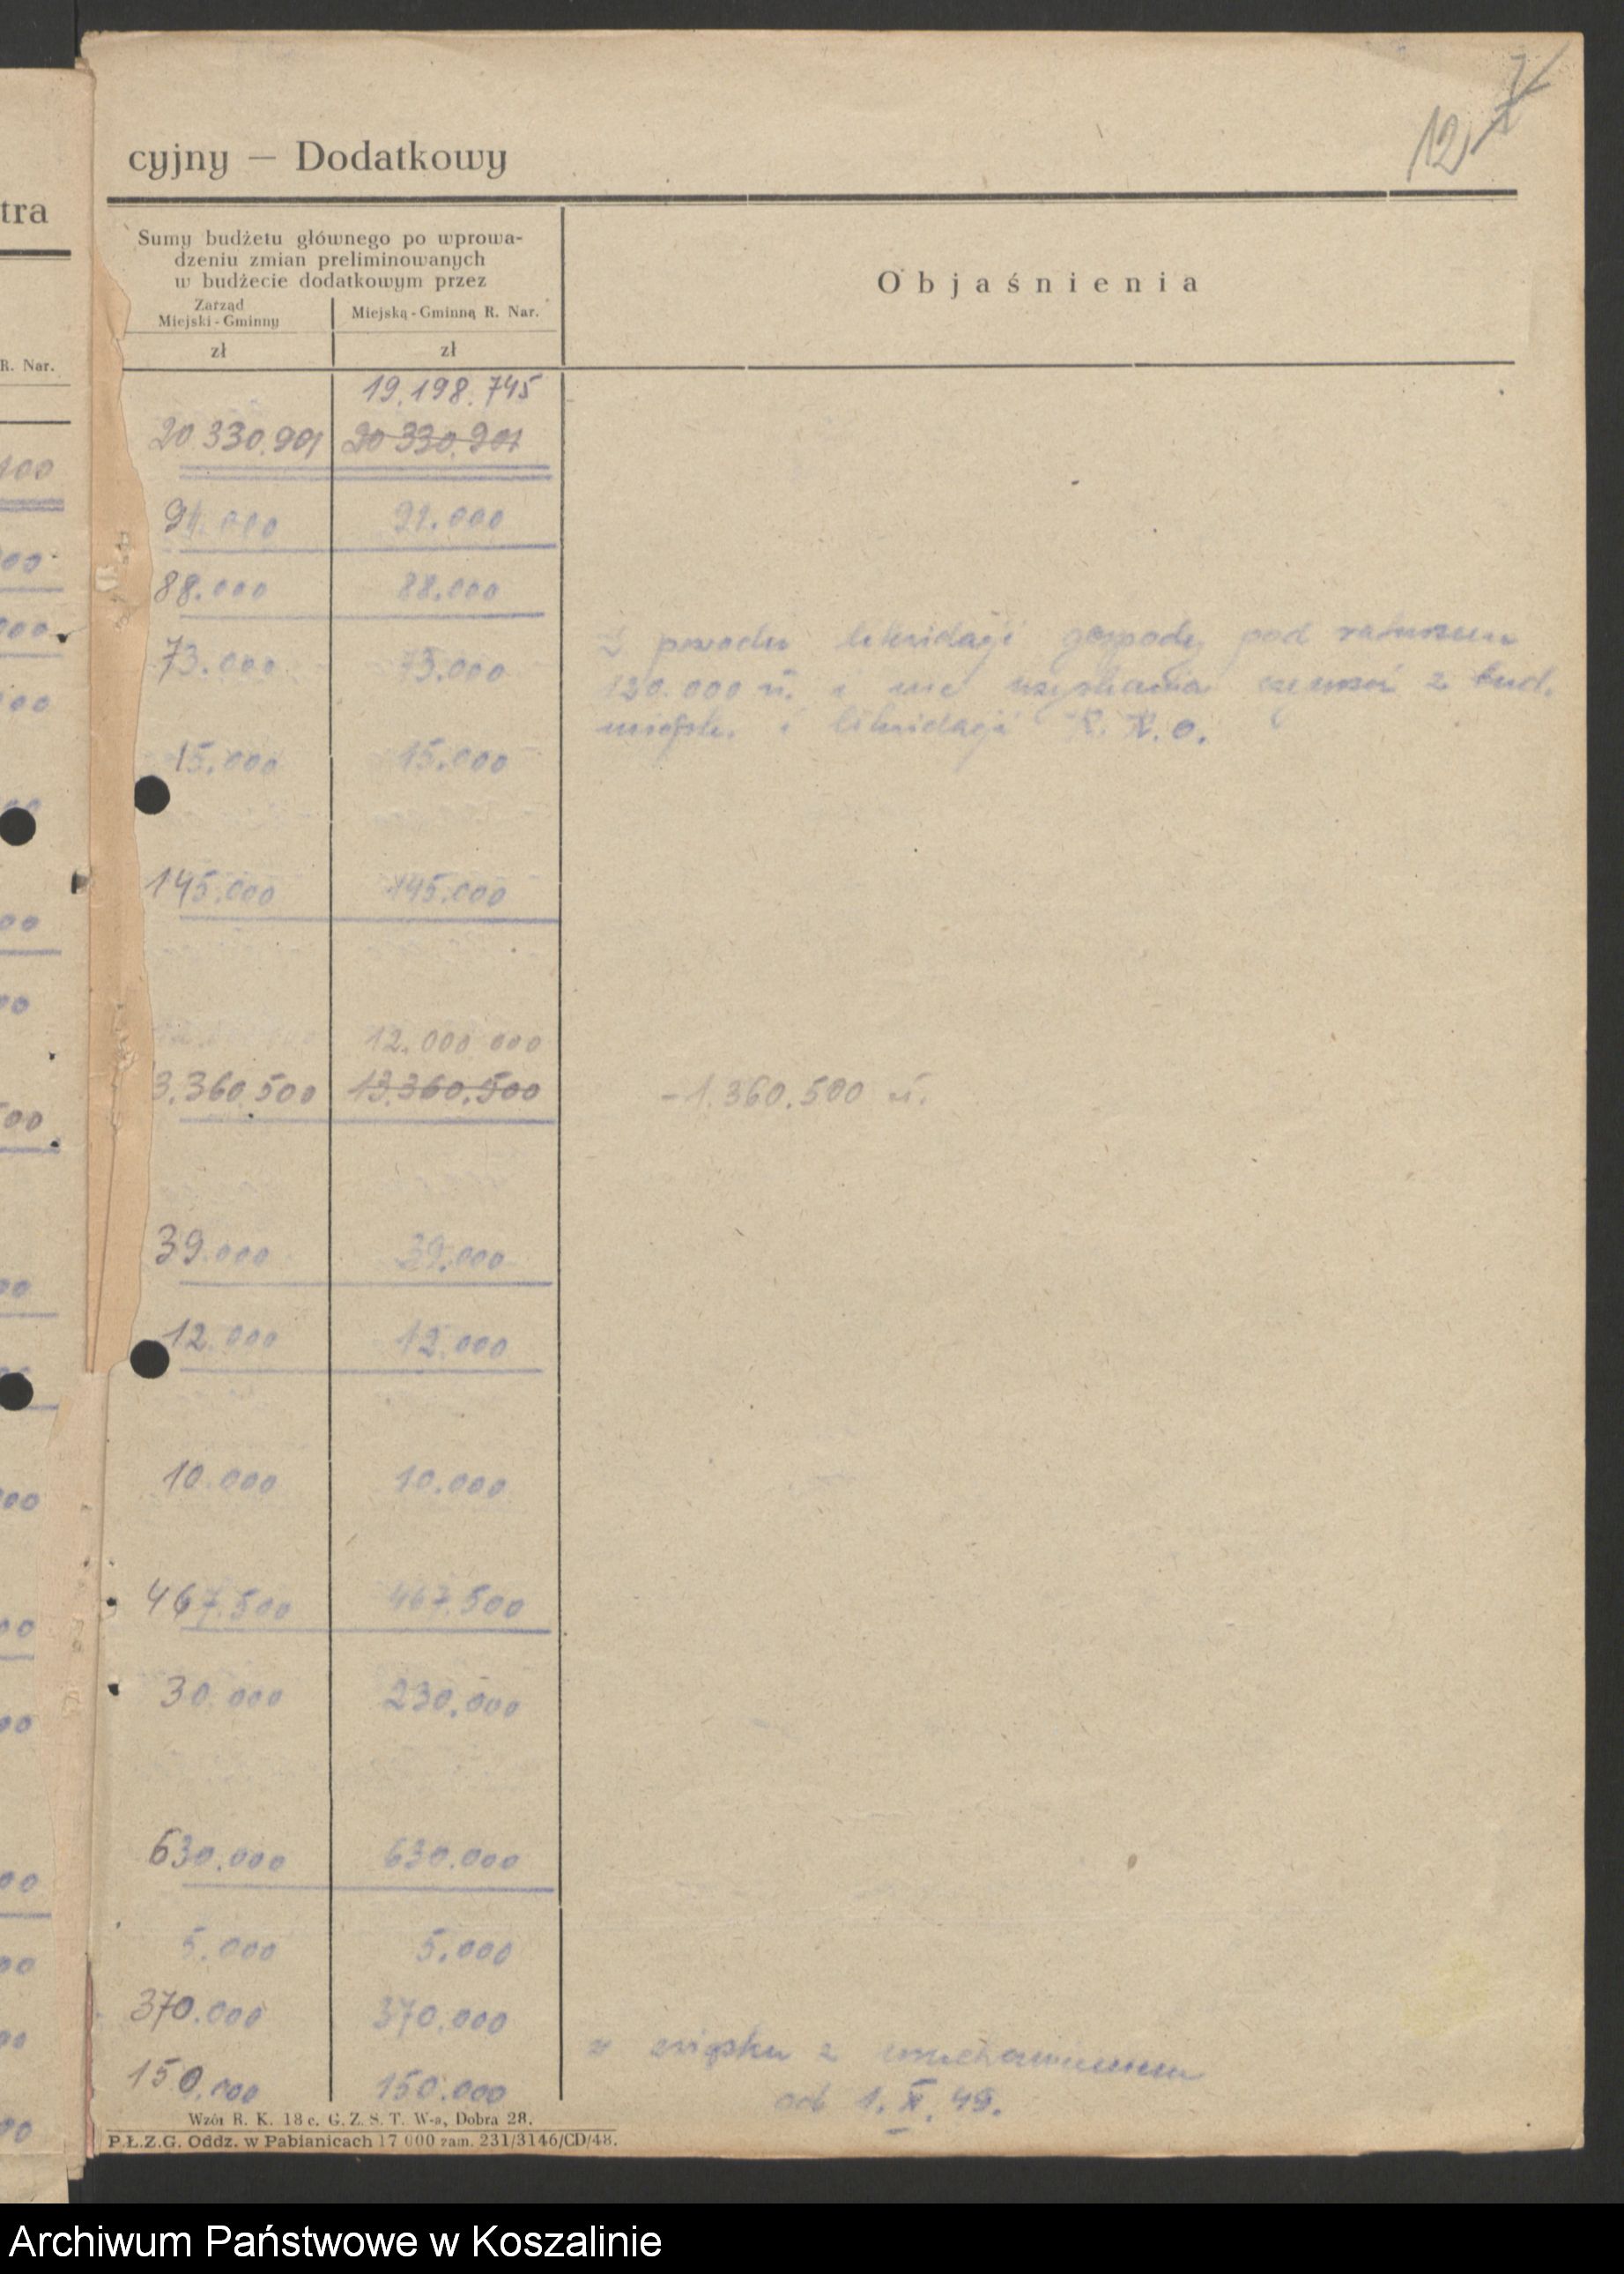 12 7
cyjny — Dodatkowy
tra
Sumy budżetu głównego po wprowa-
dzeniu zmian preliminowanych
w budżecie dodatkowym przez
Zarząd
Miejski - Gminny
Miejską - Gminną R. Nar.
zł zł
Objaśnienia
R. Nar.
19.198.745
20 330.901 20 330.901
91.000 91.000
88.000 88.000
73.000 73.000
Z powodu likwidacji gospody pod ratuszem
130.000 zł. i nie uzyskania z bud.
miejsk. i likwidacji
15.000 15.000
145.000 145.000
12.000 000
3.360.500 13.360.500 -1.360.500 zł.
39.000 39.000
12.000 12.000
10.000 10.000
467.500 467.500
30.000 230.000
630.000 630.000
5.000 5.000
370.000 370.000
150.000 150.000
w związku z uruchomieniem
od 1. X. 49.
Wzór R. K. 18 c. G. Z. S. T. W-a, Dobra 28.
P.Ł.Z.G. Oddz. w Pabianicach 17 000 zam. 231/3146/CD/48.
Archiwum Państwowe w Koszalinie